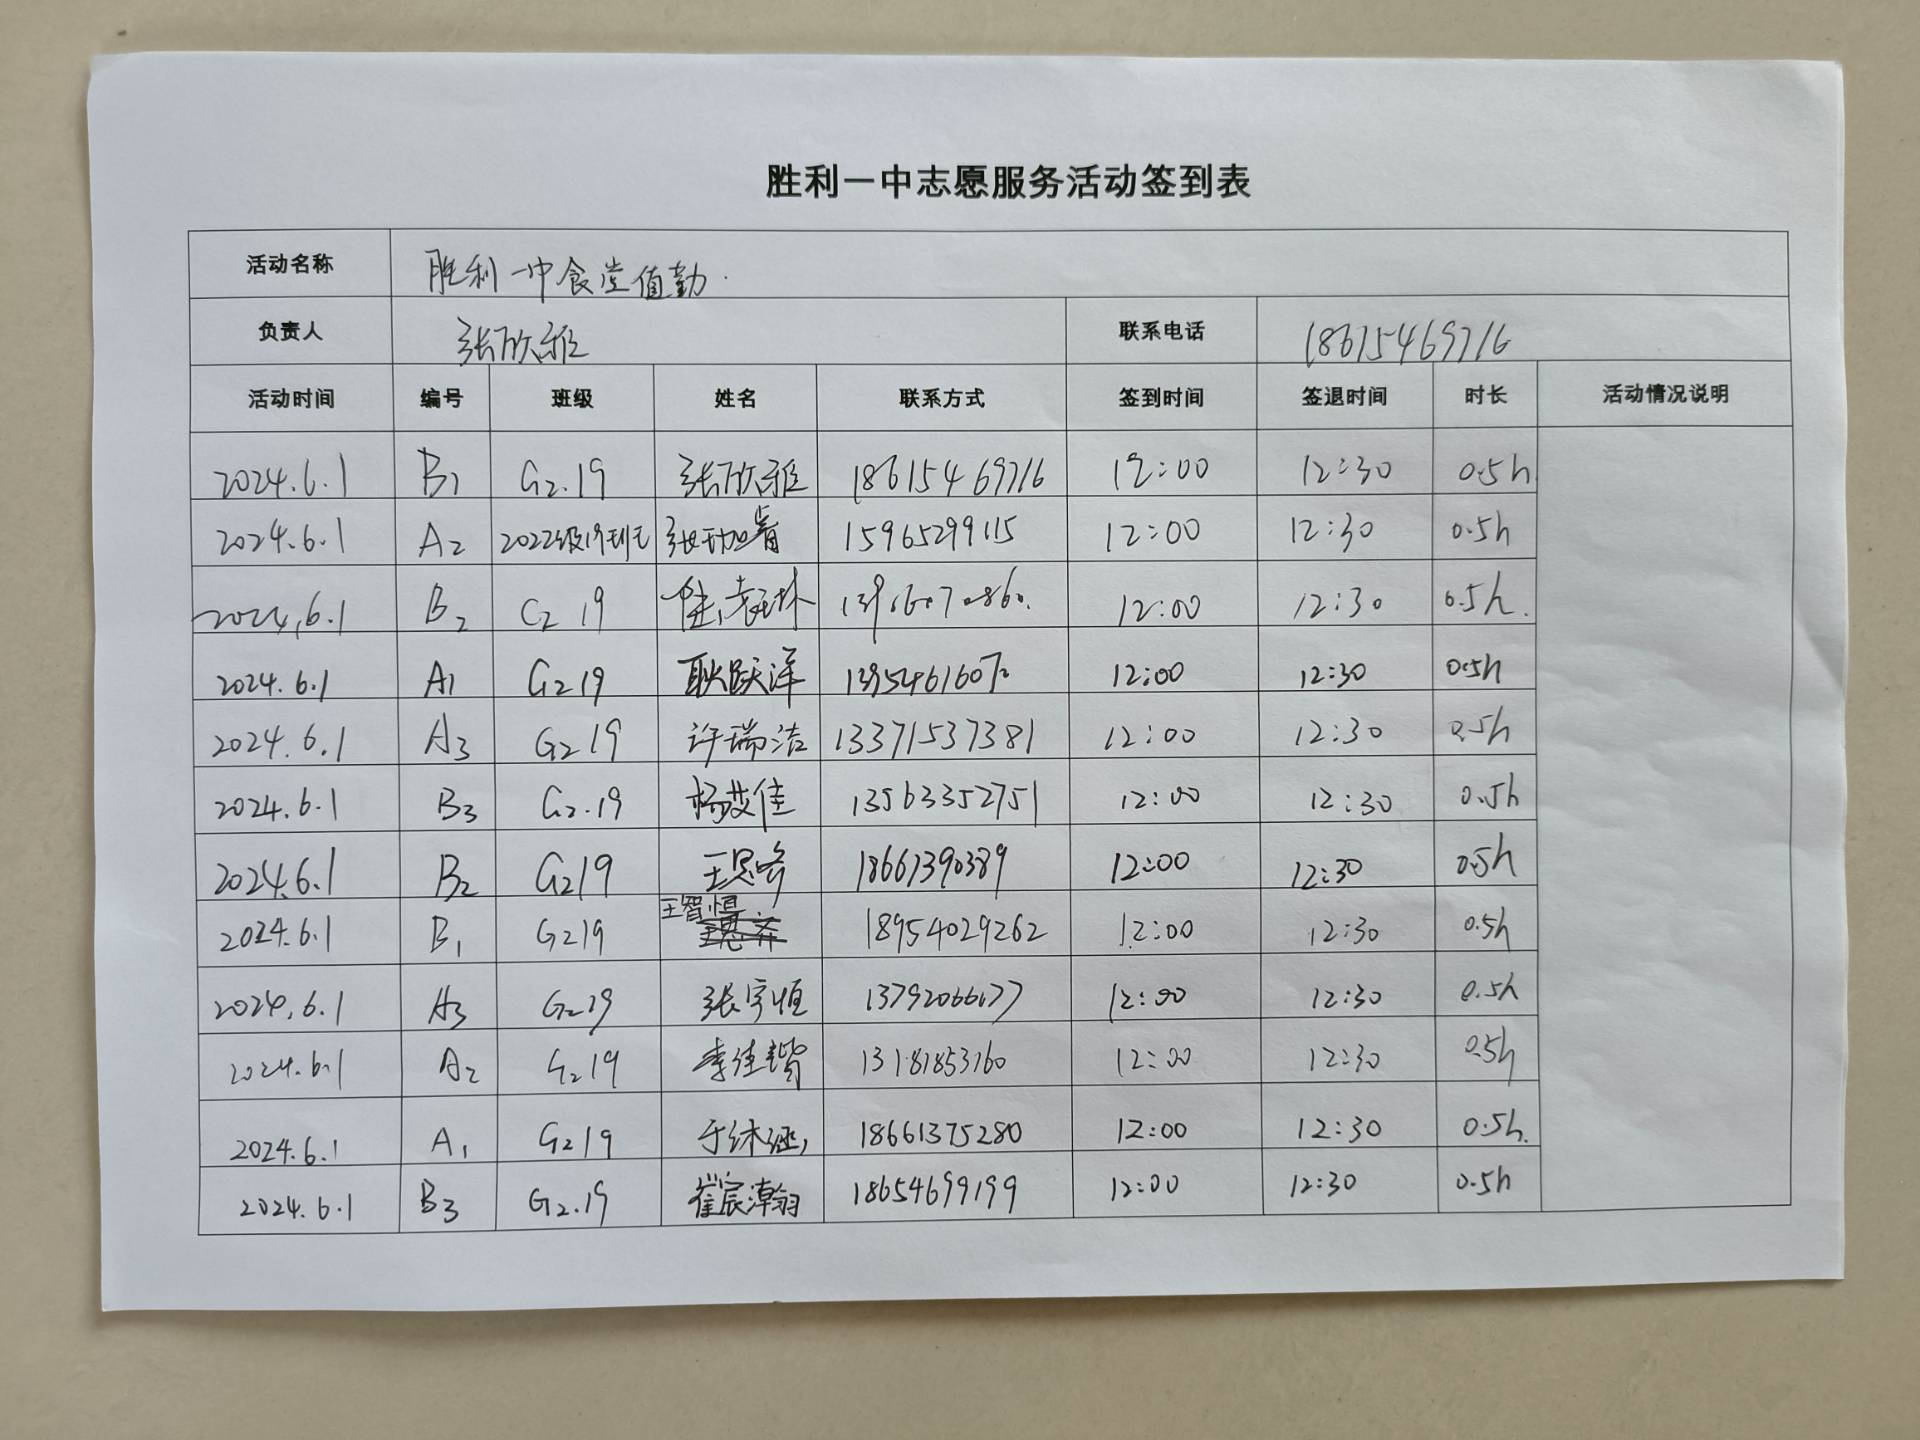 胜利一中志愿服务活动签到表
活动名称 胜利一中食堂值勤
负责人 张欣雅 联系电话 18615469716
活动时间 编号 班级 姓名 联系方式 签到时间 签退时间 时长 活动情况说明
2024.6.1 B1 G2.19 张欣雅 18615469716 12:00 12:30 0.5h
2024.6.1 A2 2022级19班 15965299115 12:00 12:30 0.5h
2024.6.1 B2 G2 19 12:00 12:30 0.5h.
2024.6.1 A1 G2 19 耿跃洋 12:00 12:30 0.5h
2024.6.1 A3 G2 19 许瑞洁 13371537381 12:00 12:30 0.5h
2024.6.1 B3 G2.19 杨艾佳 13563352751 12:00 12:30 0.5h
2024.6.1 B2 G219 18661390389 12:00 12:30 0.5h
2024.6.1 B1 G219 王智恒 18954029262 12:00 12:30 0.5h
2024.6.1 A3 G219 张宇恒 13792066177 12:00 12:30 0.5h
2024.6.1 A2 G219 李佳锴 13181853160 12:00 12:30 0.5h
2024.6.1 A1 G219 于沐涵 18661375280 12:00 12:30 0.5h.
2024.6.1 B3 G2.19 崔宸瀚 18654699199 12:00 12:30 0.5h